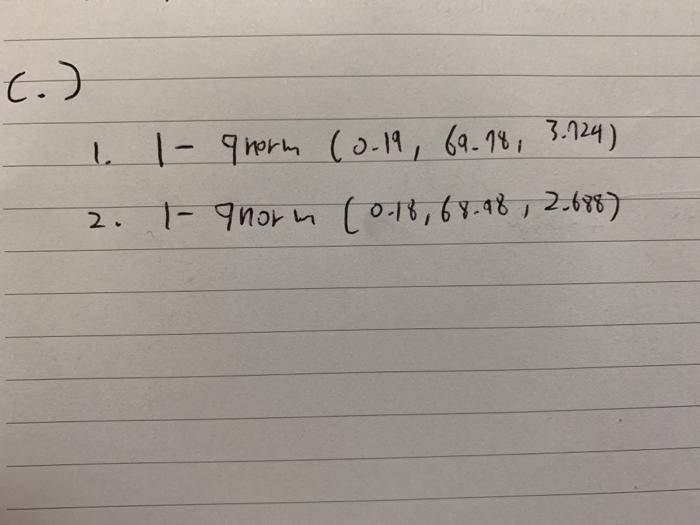 (.)
1. 1- qnorm (0.19, 69.78, 3.724)
2. 1- qnorm (0.18, 68.98, 2.688)